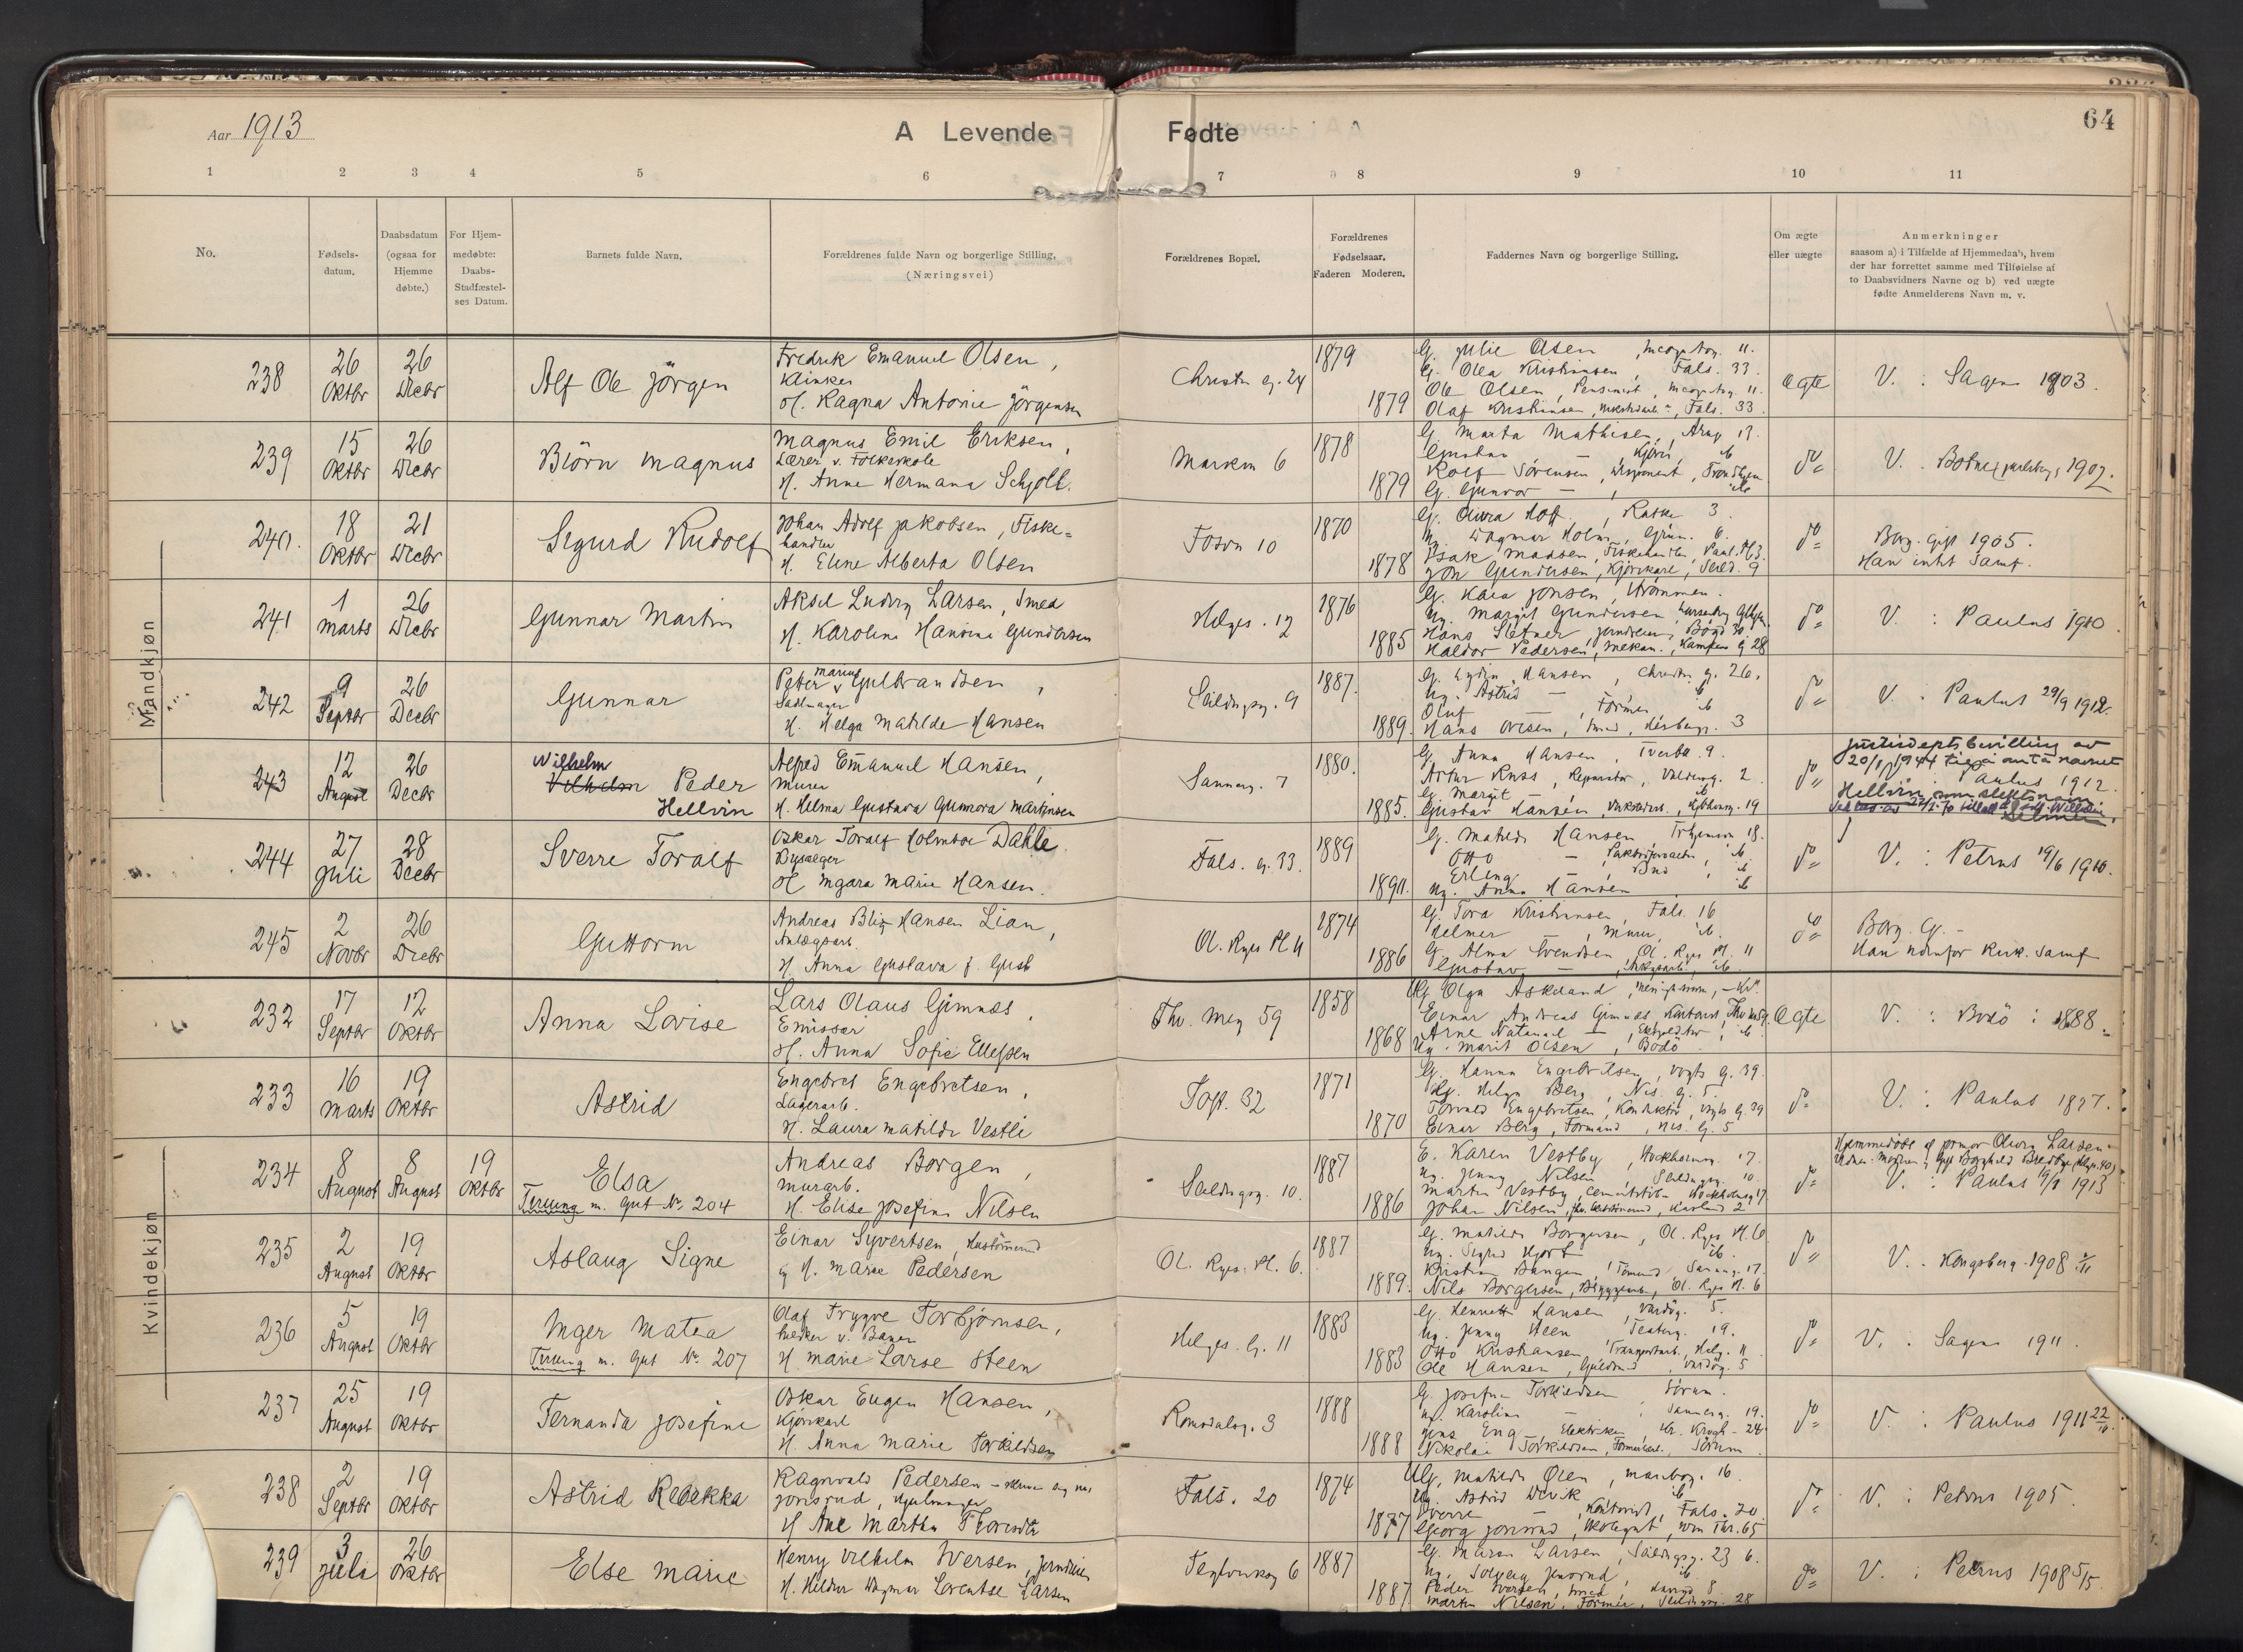 64
Aar 1913
A Levende Fødte
1 2 3 4 5 6 7 8 9 10 11
No.
Fødsels-
datum.
Daabsdatum
(ogsaa for
Hjemme
døbte.)
For Hjem-
medøbte:
Daabs-
Stadfæstel-
ses Datum.
Barnets fulde Navn.
Forældrenes fulde Navn og borgerlige Stilling.
(Næringsvei)
Forældrenes Bopæl.
Forældrenes
Fødselsaar.
Faderen Moderen.
Faddernes Navn og borgerlige Stilling.
Om ægte
eller uægte
Anmerkninger
saasom a) i Tilfælde af Hjemmedaab, hvem
der har forrettet samme med Tilføielse af
to Daabsvidners Navne og b) ved uægte
fødte Anmelderens Navn m. v.
Mandkjøn
238
26 Oktbr
26 Decbr
Alf Ole Jörgen
Fredrik Emanuel Olsen,
H. Ragna Antonie Jörgensen
Christn g. 24
1879
1879
G. Julie Olsen
G. Olea Kristiansen, Fals. 33.
Ole Olsen, Pensionist
Olaf Kristiansen, Fals. 33.
Ægte
V. : Sagene 1903.
239
15 Oktbr
26 Decbr
Björn Magnus
Magnus Emil Eriksen,
Lærer v. Folkeskole
H. Anne Hermana Schjolt.
Markvn 6
1878
1879
G. Marta Mathisen, 13.
Gustav
Rolf Sörensen, Disponent, Trondhjem
G. Gunvor
do
V. Botne 1907.
240.
18 Oktbr
21 Decbr
Sigurd Rudolf
Johan Adolf Jakobsen, Fiske-
handler
H. Eline Alberta Olsen
Fosvn 10
1870
1878
Ug. Dagmar Holm, Grün. 6.
Isak Madsen, Fiskehandler
Jon Gundersen, Kjörekarl, Seild. 9
do
Borg. gift 1905.
Han intet Samf.
241
1 Marts
26 Decbr
Gunnar Martin
Aksel Ludvig Larsen, Smed
H. Karoline Hansine Gundersen
Helges. 12
1876
1885
G. Kaia Jonsen, Strömmen.
Ug. Margit Gundersen
Hans Sletner
Haldor Pedersen, Mekan., Kampens g 28
do
V. : Paulus 1910.
242
9 Septbr
26 Decbr
Gunnar
Peter Marius Gulbrandsen,
Sadlmager
H. Helga Matilde Hansen
Seildugsg. 9
1887.
1889.
G. Lydia Hansen, Christn g. 26.
Ug. Astrid — ib
Oluf —, Former ib
Hans Olsen, Smed, Herbergs. 3
do
V. : Paulus 29/9 1912.
243
12 August
26 Decbr
Wilhelm
Vilhelm Peder
Hellvin
Alfred Emanuel Hansen,
Murer
H. Helma Gustava Gunnora Martinsen
Sannerg. 7
1880.
1885.
G. Anna Hansen 9.
Artur Russ, Reparatør 2
G. Margit — ib
Gustav Hansen 19
do
Justisdepts bevilling av
20/1 1944 til å anta navnet
Paulus 1912.
Hellvin som slektsnavn
244
27 Juli
28 Decbr
Sverre Toralf
Oskar Toralf Holmboe Dahle
Bysælger
H. Ingara Marie Hansen.
Fals. g. 33.
1889
1891.
G. Matilde Hansen 18.
Otto —, ib.
Erling, Bud, ib
Ug. Anna Hansen, ib
do
V. : Petrus 19/6 1910.
245
2 Novbr
26 Decbr
Guttorm
Andreas Blix Hansen Lian,
Anlægsarb.
H. Anna Gustava f. Gusb
Ol. Ryes Pl 11
1874
1886
G. Tora Kristiansen, Fals. 16
Helmer —, Murer, ib.
G. Alma Svendsen, Ol. Ryes Pl. 11
Gustav —, ib
do
Borg. G. -
Han udenfor Kirk. Samf
Kvindekjøn
232
17 Septbr
12 Oktbr
Anna Lovise
Lars Olaus Gimnes
Emissær
H. Anna Sofie Ellefsen
Thv. Mey 59
1858
1868
Ug. Olga Askeland
Einar Andreas Gimnes Kontorist
Arne Natanael —, Ekspeditør, ib
Ug. Marit Olsen, Bodö
Ægte
V. : Bodö : 1888
233
16 Marts
19 Oktbr
Astrid
Engebret Engebretsen,
Lagerarb.
H. Laura Matilde Vestli
Toft. 32
1871
1870
G. Hanna Engebretsen, Vogts g. 39.
Ug. Helga Berg, Nis. g. 5.
Torvald Engebretsen, Konduktör, Vogts g. 39
Einar Berg, Formand, Nis. g. 5
do
V. : Paulus 1897.
234
8 August
8 August
19 Oktbr
Elsa
Tvilling m. Gut Nr. 204
Andreas Borgen,
Murarb.
H. Elise Josefine Nilsen
Seildugsg. 10.
1887
1886
E. Karen Vestby, Stockholmsg. 17.
Ug. Jenny Nilsen, Seildugsg. 10.
Martin Vestby
Johan Nilsen
do
V. : Paulus 1913
235
2 August
19 Oktbr
Aslaug Signe
Einar Syvertsen, Hustömmerm.
g H. Marie Pedersen
Ol. Ryes. Pl. 6.
1887
1889.
G. Matilde Borgersen, Ol. Ryes Pl. 6
Ug. Sigrid Hjort ib.
Kristian Bangen, Sannerg. 17.
Nils Borgersen, Bryggearb., Ol. Ryes Pl. 6
do
V. : Kongsberg 1908
236
5 August
19 Oktbr
Inger Matea
Tvilling m. Gut Nr. 207
Olaf Trygve Torbjörnsen,
H. Marie Larse Steen
Helges. g. 11
1883
1883
G. Henrette Hansen, Vardög. 5.
Ug. Jenny Steen, Teaterg. 19.
Otto Kristiansen, Transportarb., Helg. 11
Ole Hansen, Vardög. 5
do
V. : Sagene 1911.
237
25 August
19 Oktbr
Fernanda Josefine
Oskar Eugen Hansen,
Kjörekarl
H. Anna Marie Torkildsen
Romsdalsg. 3
1888
1888
G. Josefine Torkildsen Sörum.
Ug. Karoline — Sannerg. 19.
Jens Eng, Elektriker, Kr. Krogh - 24
Nikolai Torkildsen, Sörum
do
V. : Paulus 1911 22/10
238
2 Septbr
19 Oktbr
Astrid Rebekka
Ragnvald Pedersen - skriver sig nu
Jonsrud, Hjulmager
H Ane Martha Thoresdtr
Fals. 20
1874
1877
Ug. Matilde Olen, Maribog. 16.
Ug. Astrid ib
Sverre —, Kontorist, Fals. 20
Georg Jonsrud
do
V. : Petrus 1905.
239
3 Juli
26 Oktbr
Else Marie
Henry Vilhelm Iversen, Jerndreier
H. Hildur Dagmar Lorentse Larsen
Teglverksg 6
1887
1887
G. Maren Larsen, Seildugsg. 23 b.
Ug. Solveig ib.
Peder Iversen, Smed, 8.
Martin Nilsen, Former, Seildugsg. 28
do
V. : Petrus 1908 5/5